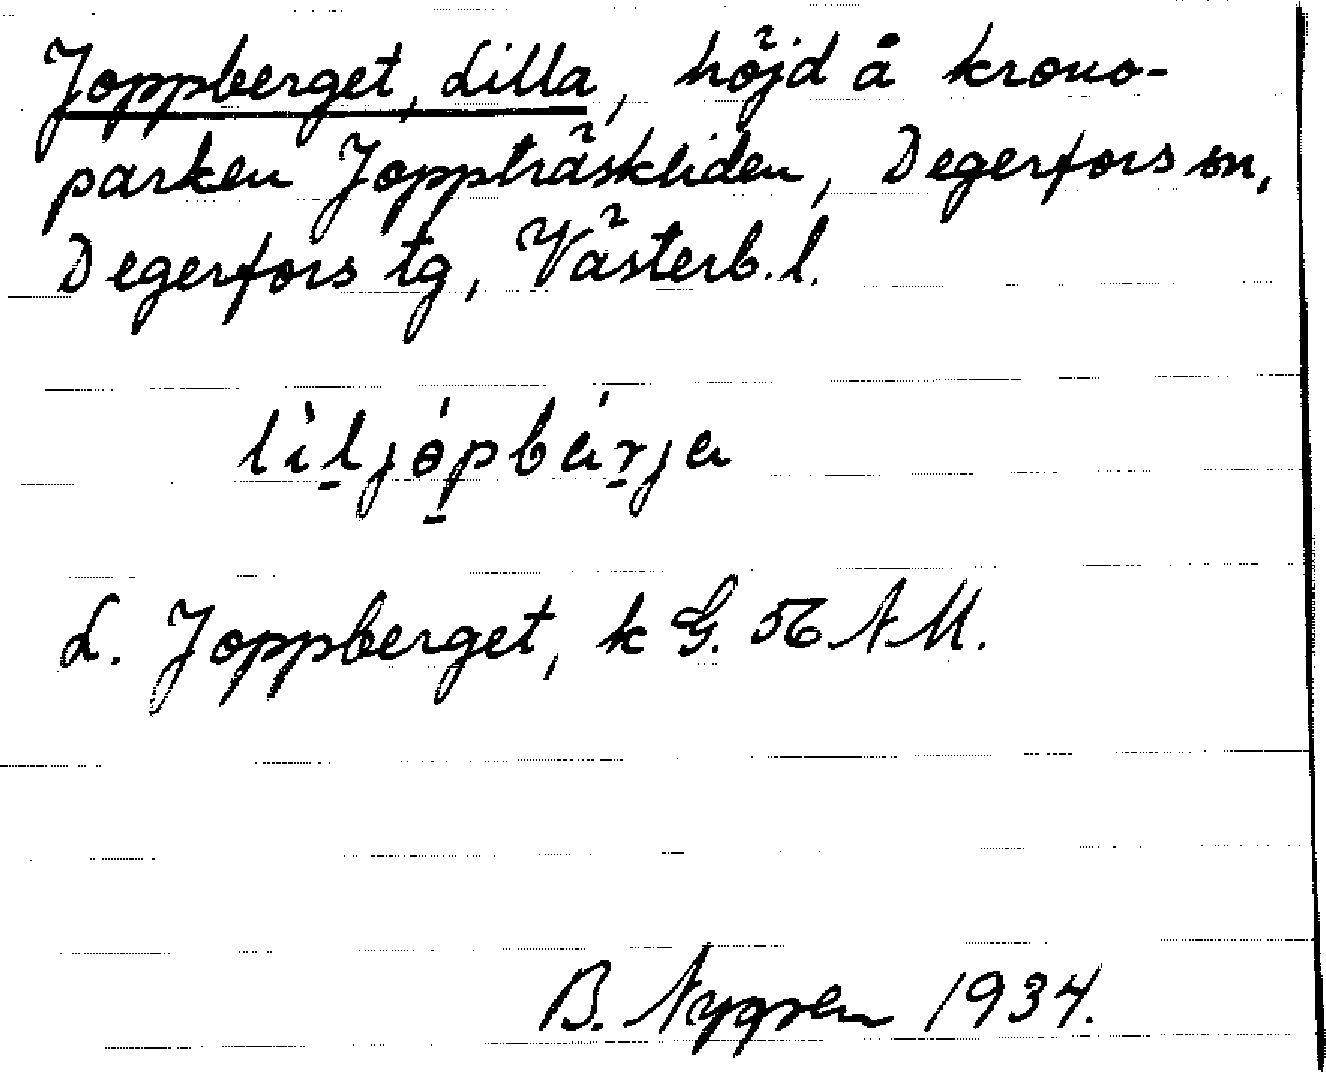 Joppberget, Lilla, höjd å krono-
parken Joppträskliden, Degerfors sn,
Degerfors tg, Västerb. l.
lìl̠jo̠̍pbár̠ja
L. Joppberget, k G. 56 NM.
B. Nygren 1934.